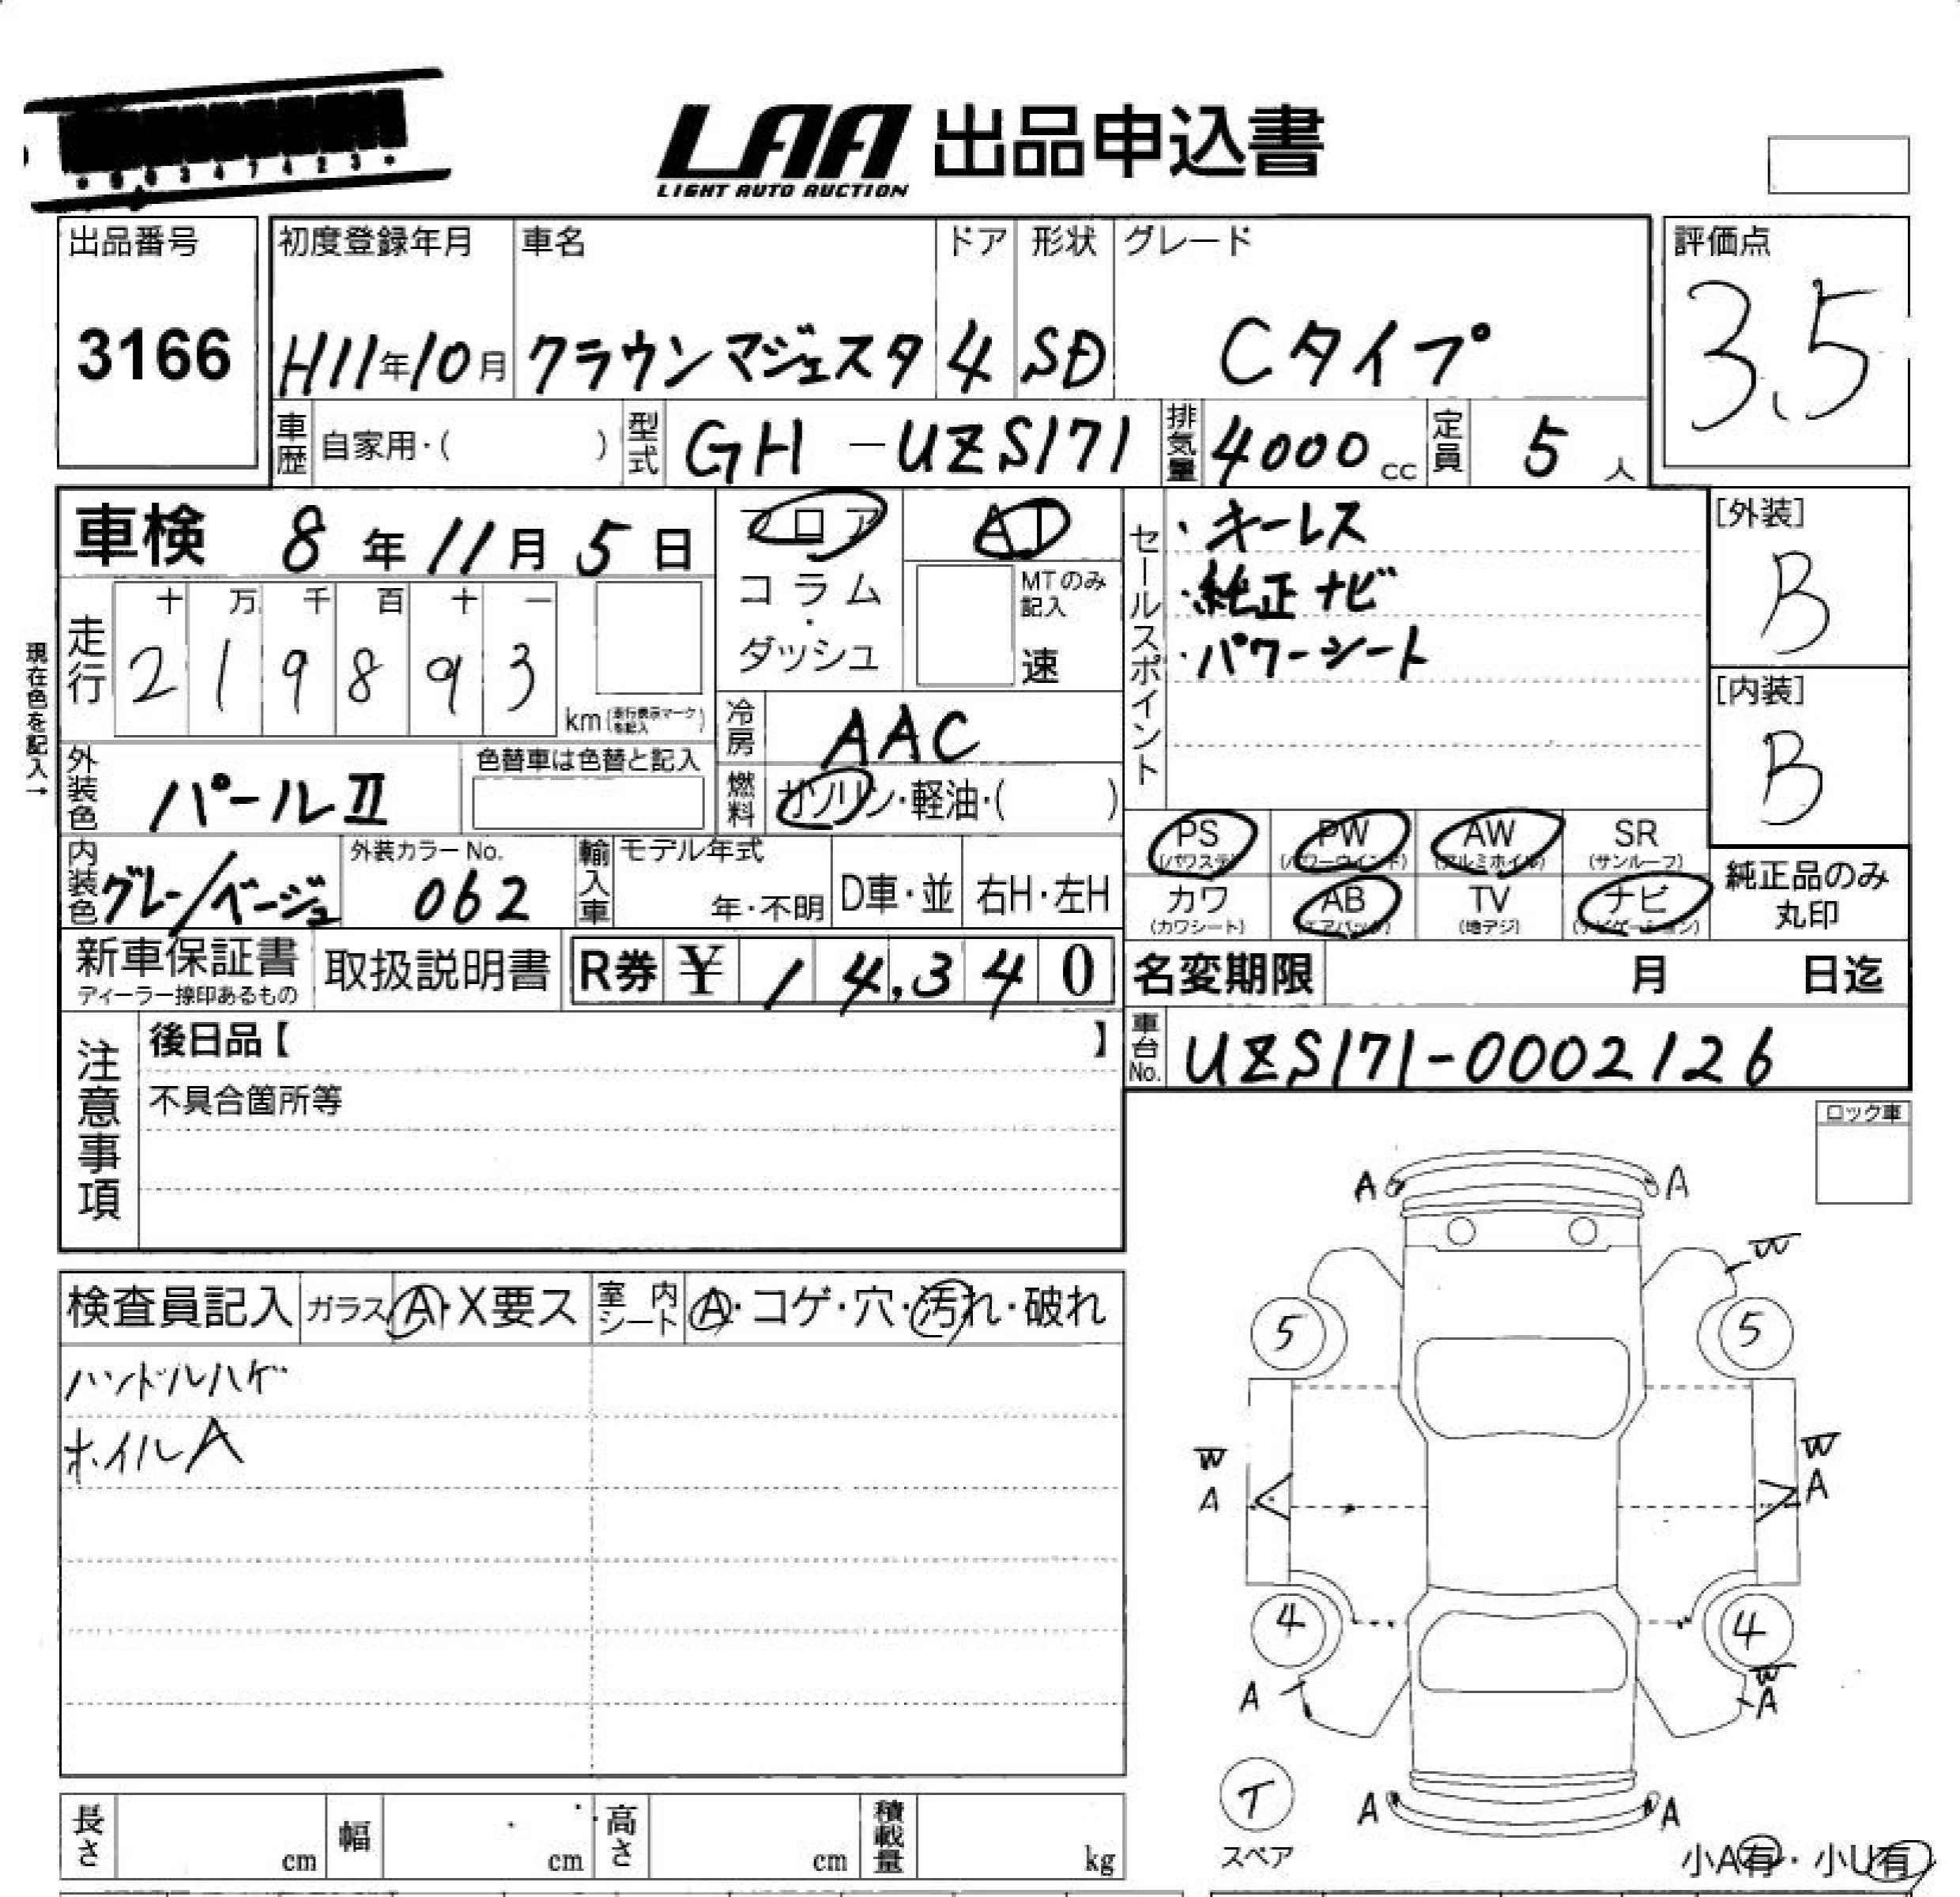 LAA 出品申込書
LIGHT AUTO AUCTION
出品番号
3166
初度登録年月
H11年10月
車名
クラウンマジェスタ
ドア
4
形状
SD
グレード
Cタイプ
評価点
3.5
車歴 自家用・( )
型式 GH-UZS171
排気量 4000cc
定員 5人
車検 8年11月5日
フロア
コラム
・
ダッシュ
AT
MTのみ記入
速
セールスポイント
・キーレス
・純正ナビ
・パワーシート
[外装]
B
[内装]
B
現在色を記入→
走行
十 万 千 百 十 一
2 1 9 8 9 3
km(走行表示マークを記入)
冷房 AAC
外装色 パールII
色替車は色替と記入
燃料 ガソリン・軽油・( )
内装色 グレー/ベージュ
外装カラーNo.
062
輸入車
モデル年式
年・不明
D車・並
右H・左H
PS (パワステ)
PW (パワーウインド)
AW (アルミホイル)
SR (サンルーフ)
カワ (カワシート)
AB (エアバック)
TV (地デジ)
ナビ (ナビゲーション)
純正品のみ
丸印
新車保証書
ディーラー捺印あるもの
取扱説明書
R券 ¥ 14,340
名変期限 月 日迄
注意事項
後日品【 】
不具合箇所等
車台No. UZS171-0002126
ロック車
検査員記入
ガラス A・X要ス
室内シート A・コゲ・穴・汚れ・破れ
ハンドルハゲ
ホイルA
A A
W
5 5
W W
A A
4 4
W
A A
T
スペア
A A
小A有・小U有
長さ cm
幅 cm
高さ cm
積載量 kg